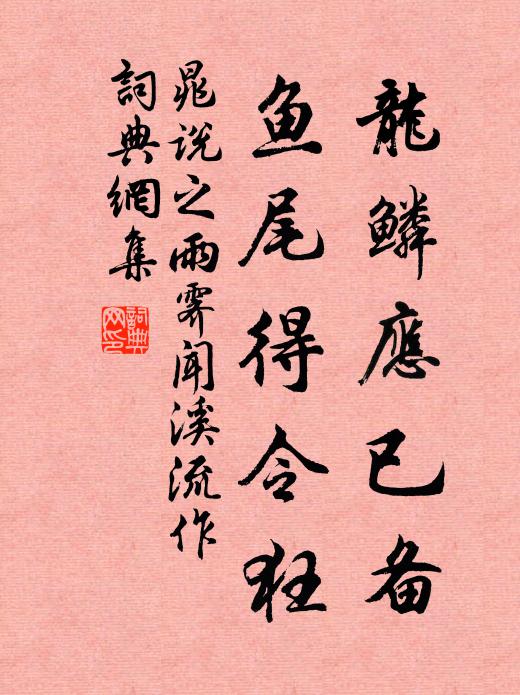 龍鱗應已备
鱼尾得令狂
晁说之雨霁闻溪流作
詞典網集
詞典网印